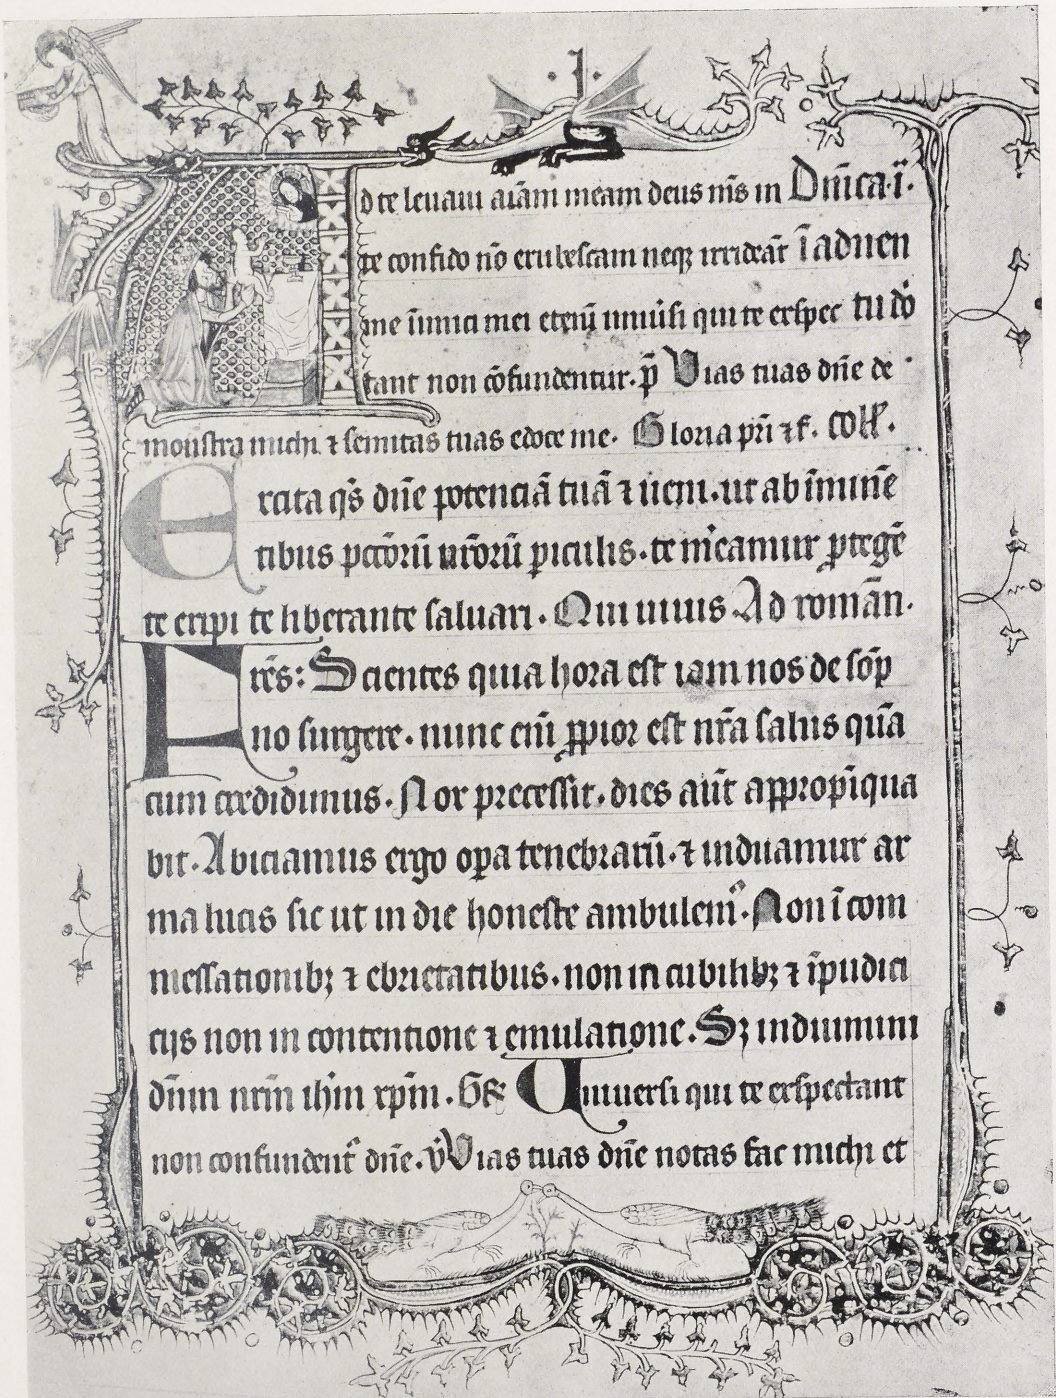 ·I·
Ad te leuaui aĩam meam deus mñs in Dñica·ĩ·
te confido nõ erubescam neqꝫ irrideãt ĩ aduen
me ĩimici mei eteĩ uniũsi qui te exspec tu dõ
tant non cõfundentur. p̃ Vias tuas dñe de
monstra michi ⁊ semitas tuas edoce me. Gloria pr̃i ⁊ f̃. Coll̃.
Excita qs̃ dñe potenciã tuã ⁊ ueni. ut ab ĩminẽ
tibus pctõrũ nr̃orũ ꝑiculis. te m̃eamur ꝓtegẽ
te eripi te liberante saluari. Qui uiuis Ad romãn.
Fr̃es: Scientes quia hora est iam nos de sõp
no surgere. nunc eñi ꝓpior est nr̃a salus quã
cum credidimus. Nox precessit. dies aũt appropĩqua
bit. Abiciamus ergo oꝑa tenebrarũ. ⁊ induamur ar
ma lucis sic ut in die honeste ambulem᷒. Non ĩ com
messationibꝫ ⁊ ebrietatibus. non in cubilibꝫ ⁊ ĩpudici
cijs non in contentione ⁊ emulatione. Sꝫ induimini
dñm nr̃m ihm̃ xp̃m. Gr̃ Uniuersi qui te exspectant
non confundent᷑ dñe. ꝟ Vias tuas dñe notas fac michi et